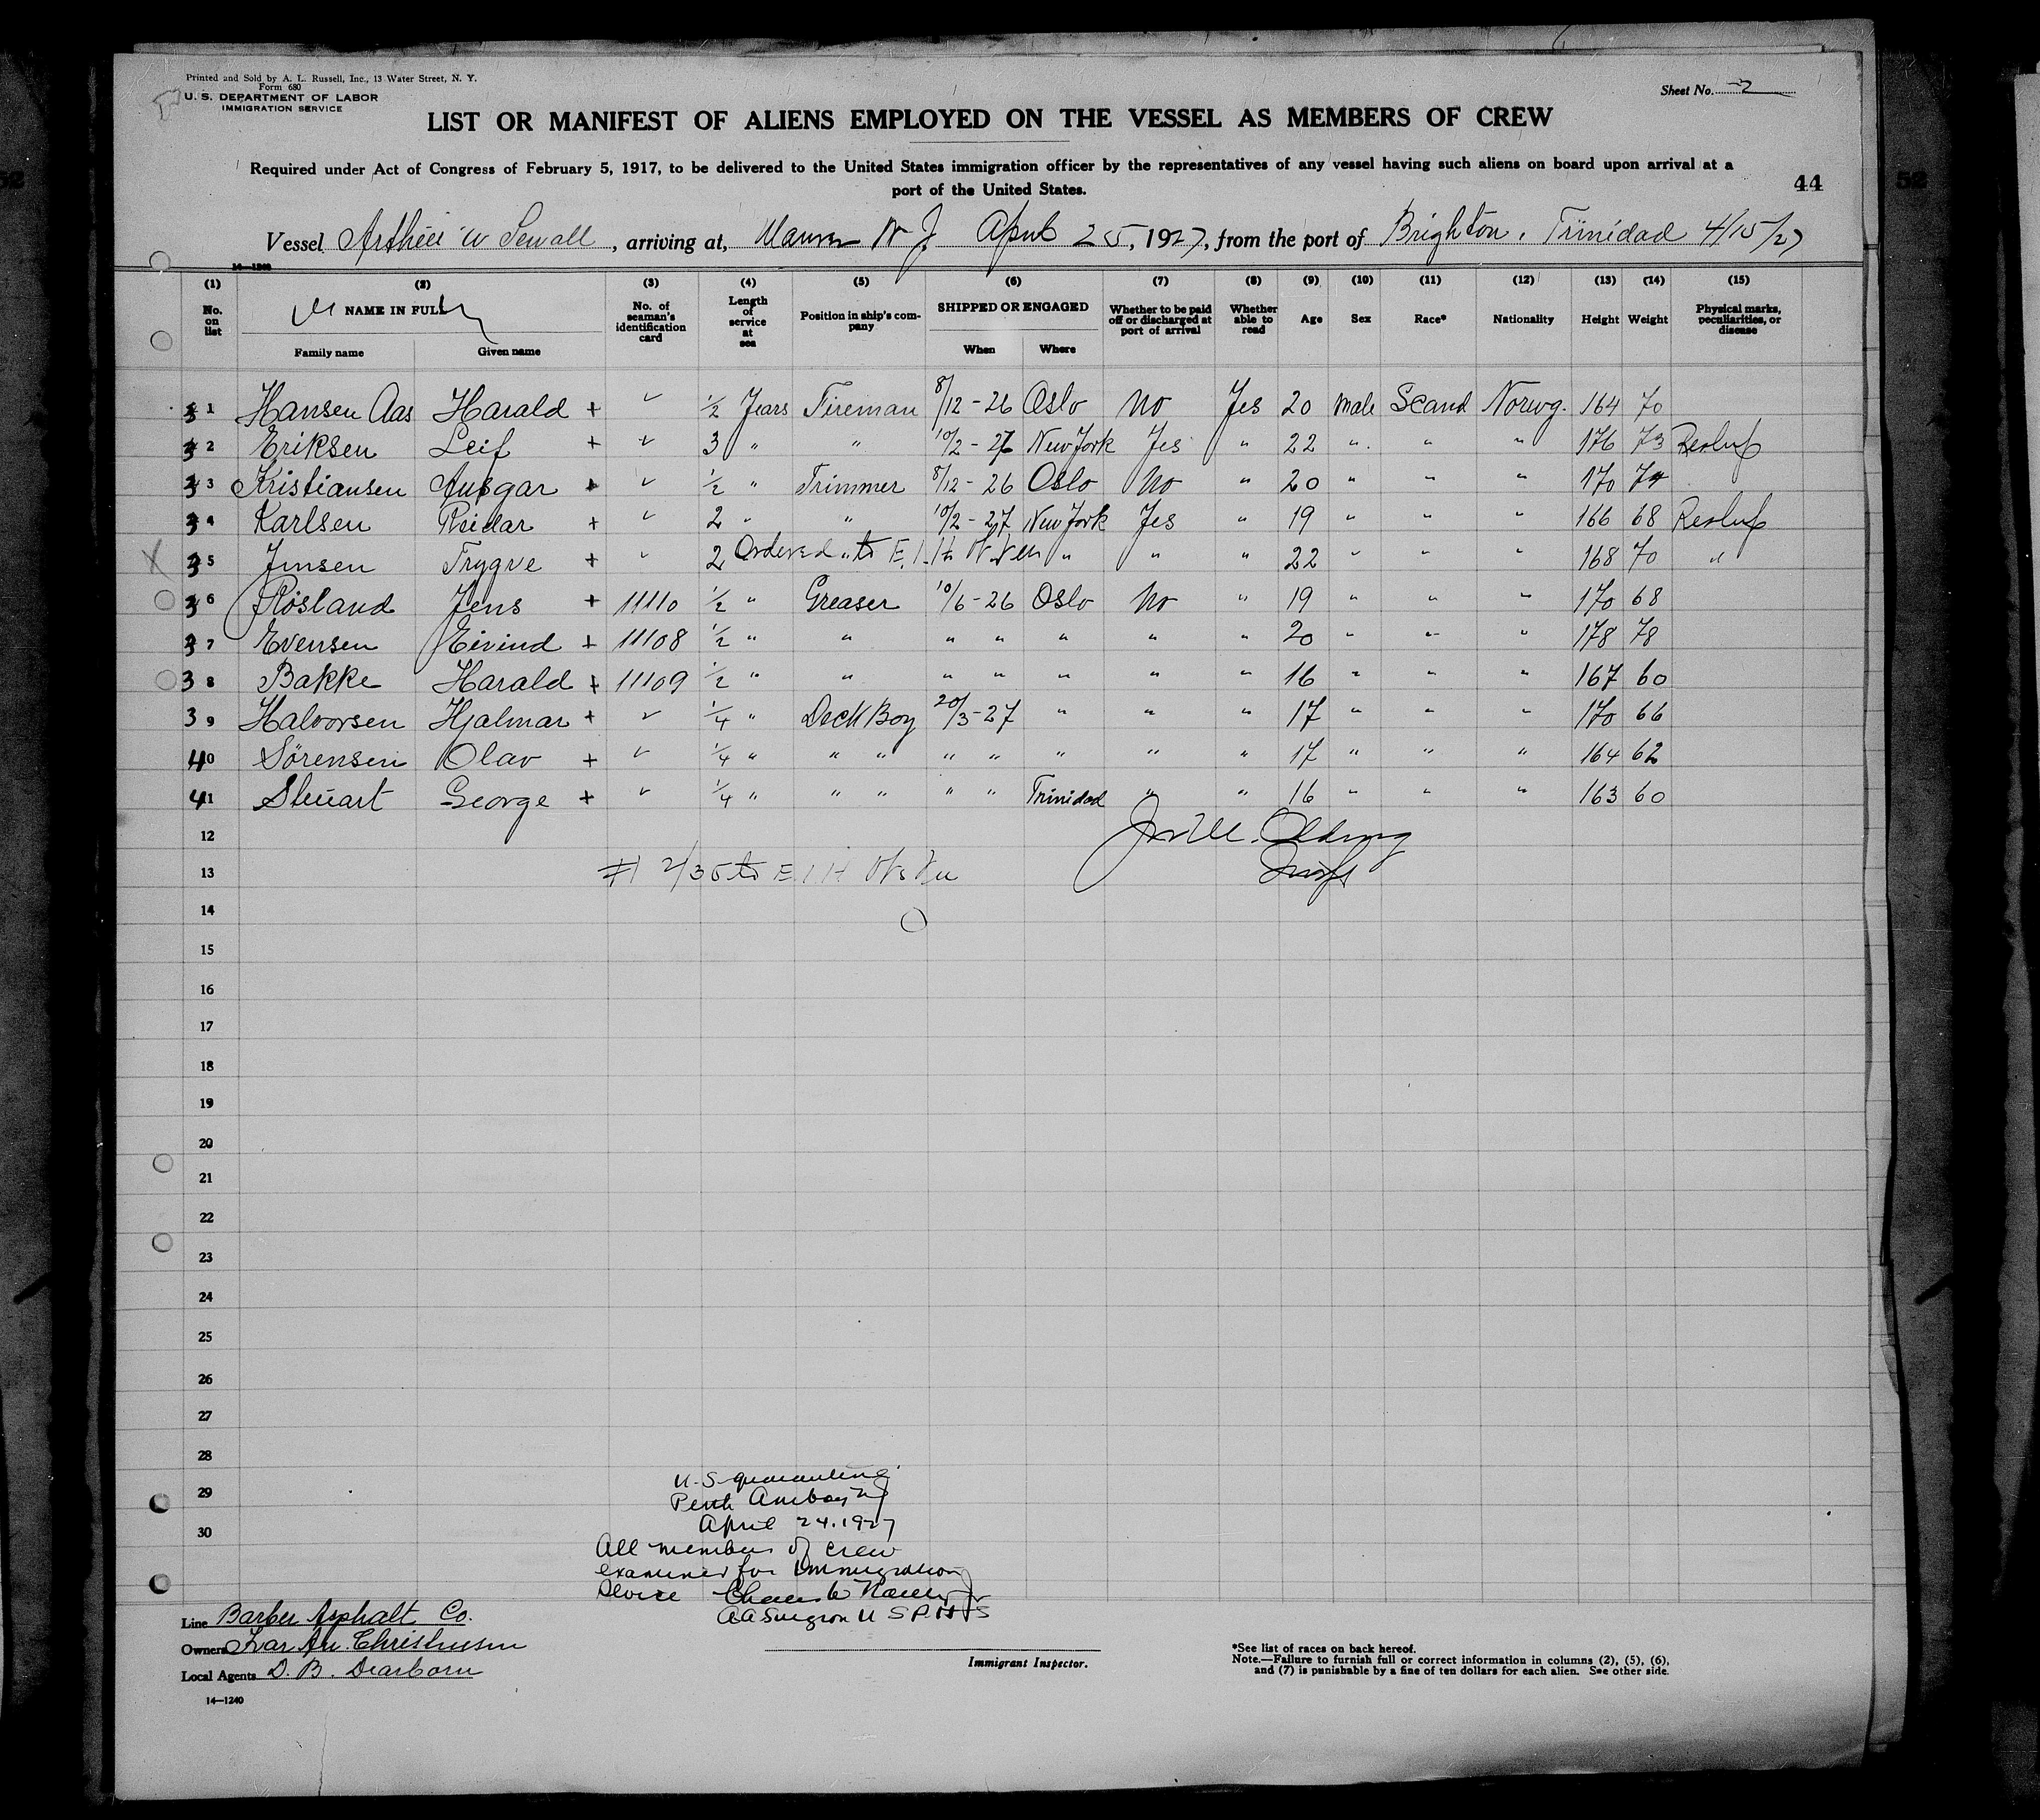 Printed and Sold by A. L. Russell, Inc., 13 Water Street, N. Y.
Form 680
U. S. DEPARTMENT OF LABOR
IMMIGRATION SERVICE
Sheet No. 2
LIST OR MANIFEST OF ALIENS EMPLOYED ON THE VESSEL AS MEMBERS OF CREW
Required under Act of Congress of February 5, 1917, to be delivered to the United States immigration officer by the representatives of any vessel having such aliens on board upon arrival at a
port of the United States.
44
Vessel Arthur W Sewall, arriving at, Maurer N J April 25, 1927, from the port of Brighton, Trinidad 4/15/27
14—1240
(1) (2) (3) (4) (5) (6) (7) (8) (9) (10) (11) (12) (13) (14) (15)
No. on list NAME IN FULL Family name Given name No. of seaman's identification card Length of service at sea Position in ship's company SHIPPED OR ENGAGED When Where Whether to be paid off or discharged at port of arrival Whether able to read Age Sex Race* Nationality Height Weight Physical marks, peculiarities, or disease
1 Hansen Aas Harald + ✓ 1/2 Years Fireman 8/12 - 26 Oslo No Yes 20 Male Scand Norwg. 164 70
2 Eriksen Leif + ✓ 3 " " 10/2 - 27 New York Yes " 22 " " " 176 73
3 Kristiansen Ansgar + ✓ 1/2 " Trimmer 8/12 - 26 Oslo No " 20 " " " 170 74
4 Karlsen Reidar + ✓ 2 " " 10/2 - 27 New York Yes " 19 " " " 166 68
5 Jensen Trygve + ✓ 2 Ordered to E. I. " " " 22 " " " 168 70 "
6 Røsland Jens + 11110 1/2 " Greaser 10/6 - 26 Oslo No " 19 " " " 170 68
7 Evensen Eivind + 11108 1/2 " " " " " " " 20 " " " 178 78
38 Bakke Harald + 11109 1/2 " " " " " " " 16 " " " 167 60
39 Halvorsen Hjalmar + ✓ 1/4 " Deck Boy 20/3 - 27 " " " 17 " " " 170 66
40 Sørensen Olav + ✓ 1/4 " " " " " " " " 17 " " " 164 62
41 Steuart George + ✓ 1/4 " " " " " Trinidad " " 16 " " " 163 60
12
13 # 2/35 to E. I. H
14
15
16
17
18
19
20
21
22
23
24
25
26
27
28
29
30
U. S quarantine
Perth Amboy NJ
April 24. 1927
All members of crew
examined for Immigration
Service
A A Surgeon U S P H S
Line Barber Asphalt Co.
Owners Ivar An. Christensen
Local Agents D. B. Dearborn
14—1240
Immigrant Inspector.
*See list of races on back hereof.
Note.—Failure to furnish full or correct information in columns (2), (5), (6),
and (7) is punishable by a fine of ten dollars for each alien. See other side.